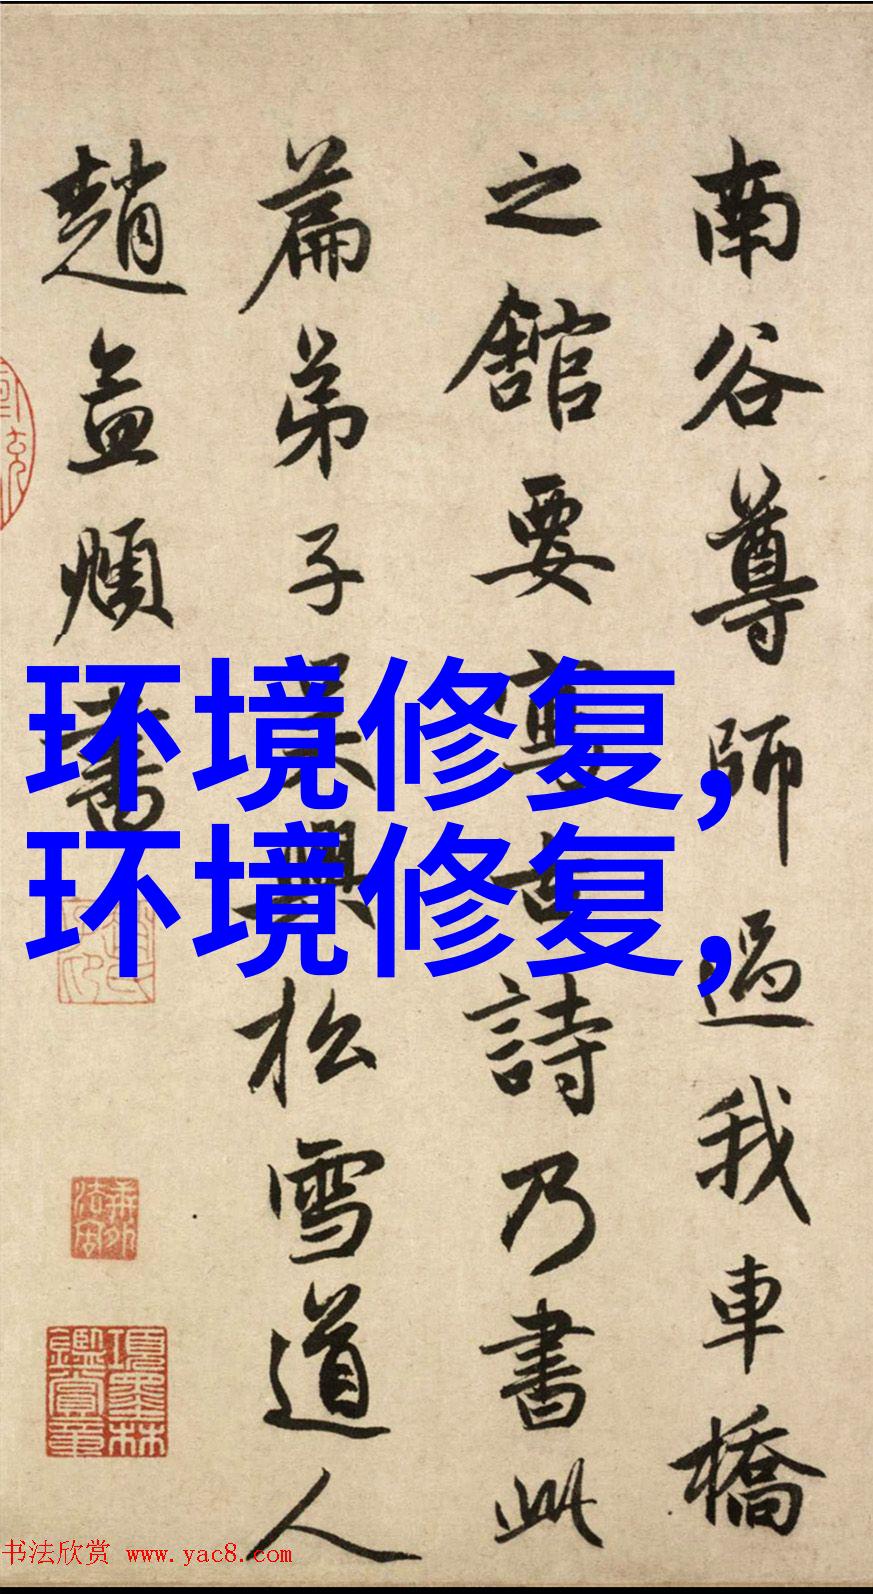 南谷尊師過我車橋
之館要寫古詩乃書此
篇弟子吴興松雪道人
趙孟頫書
环境修复,
环境修复,
項墨林鑑賞章
书法欣赏 www.yac8.com